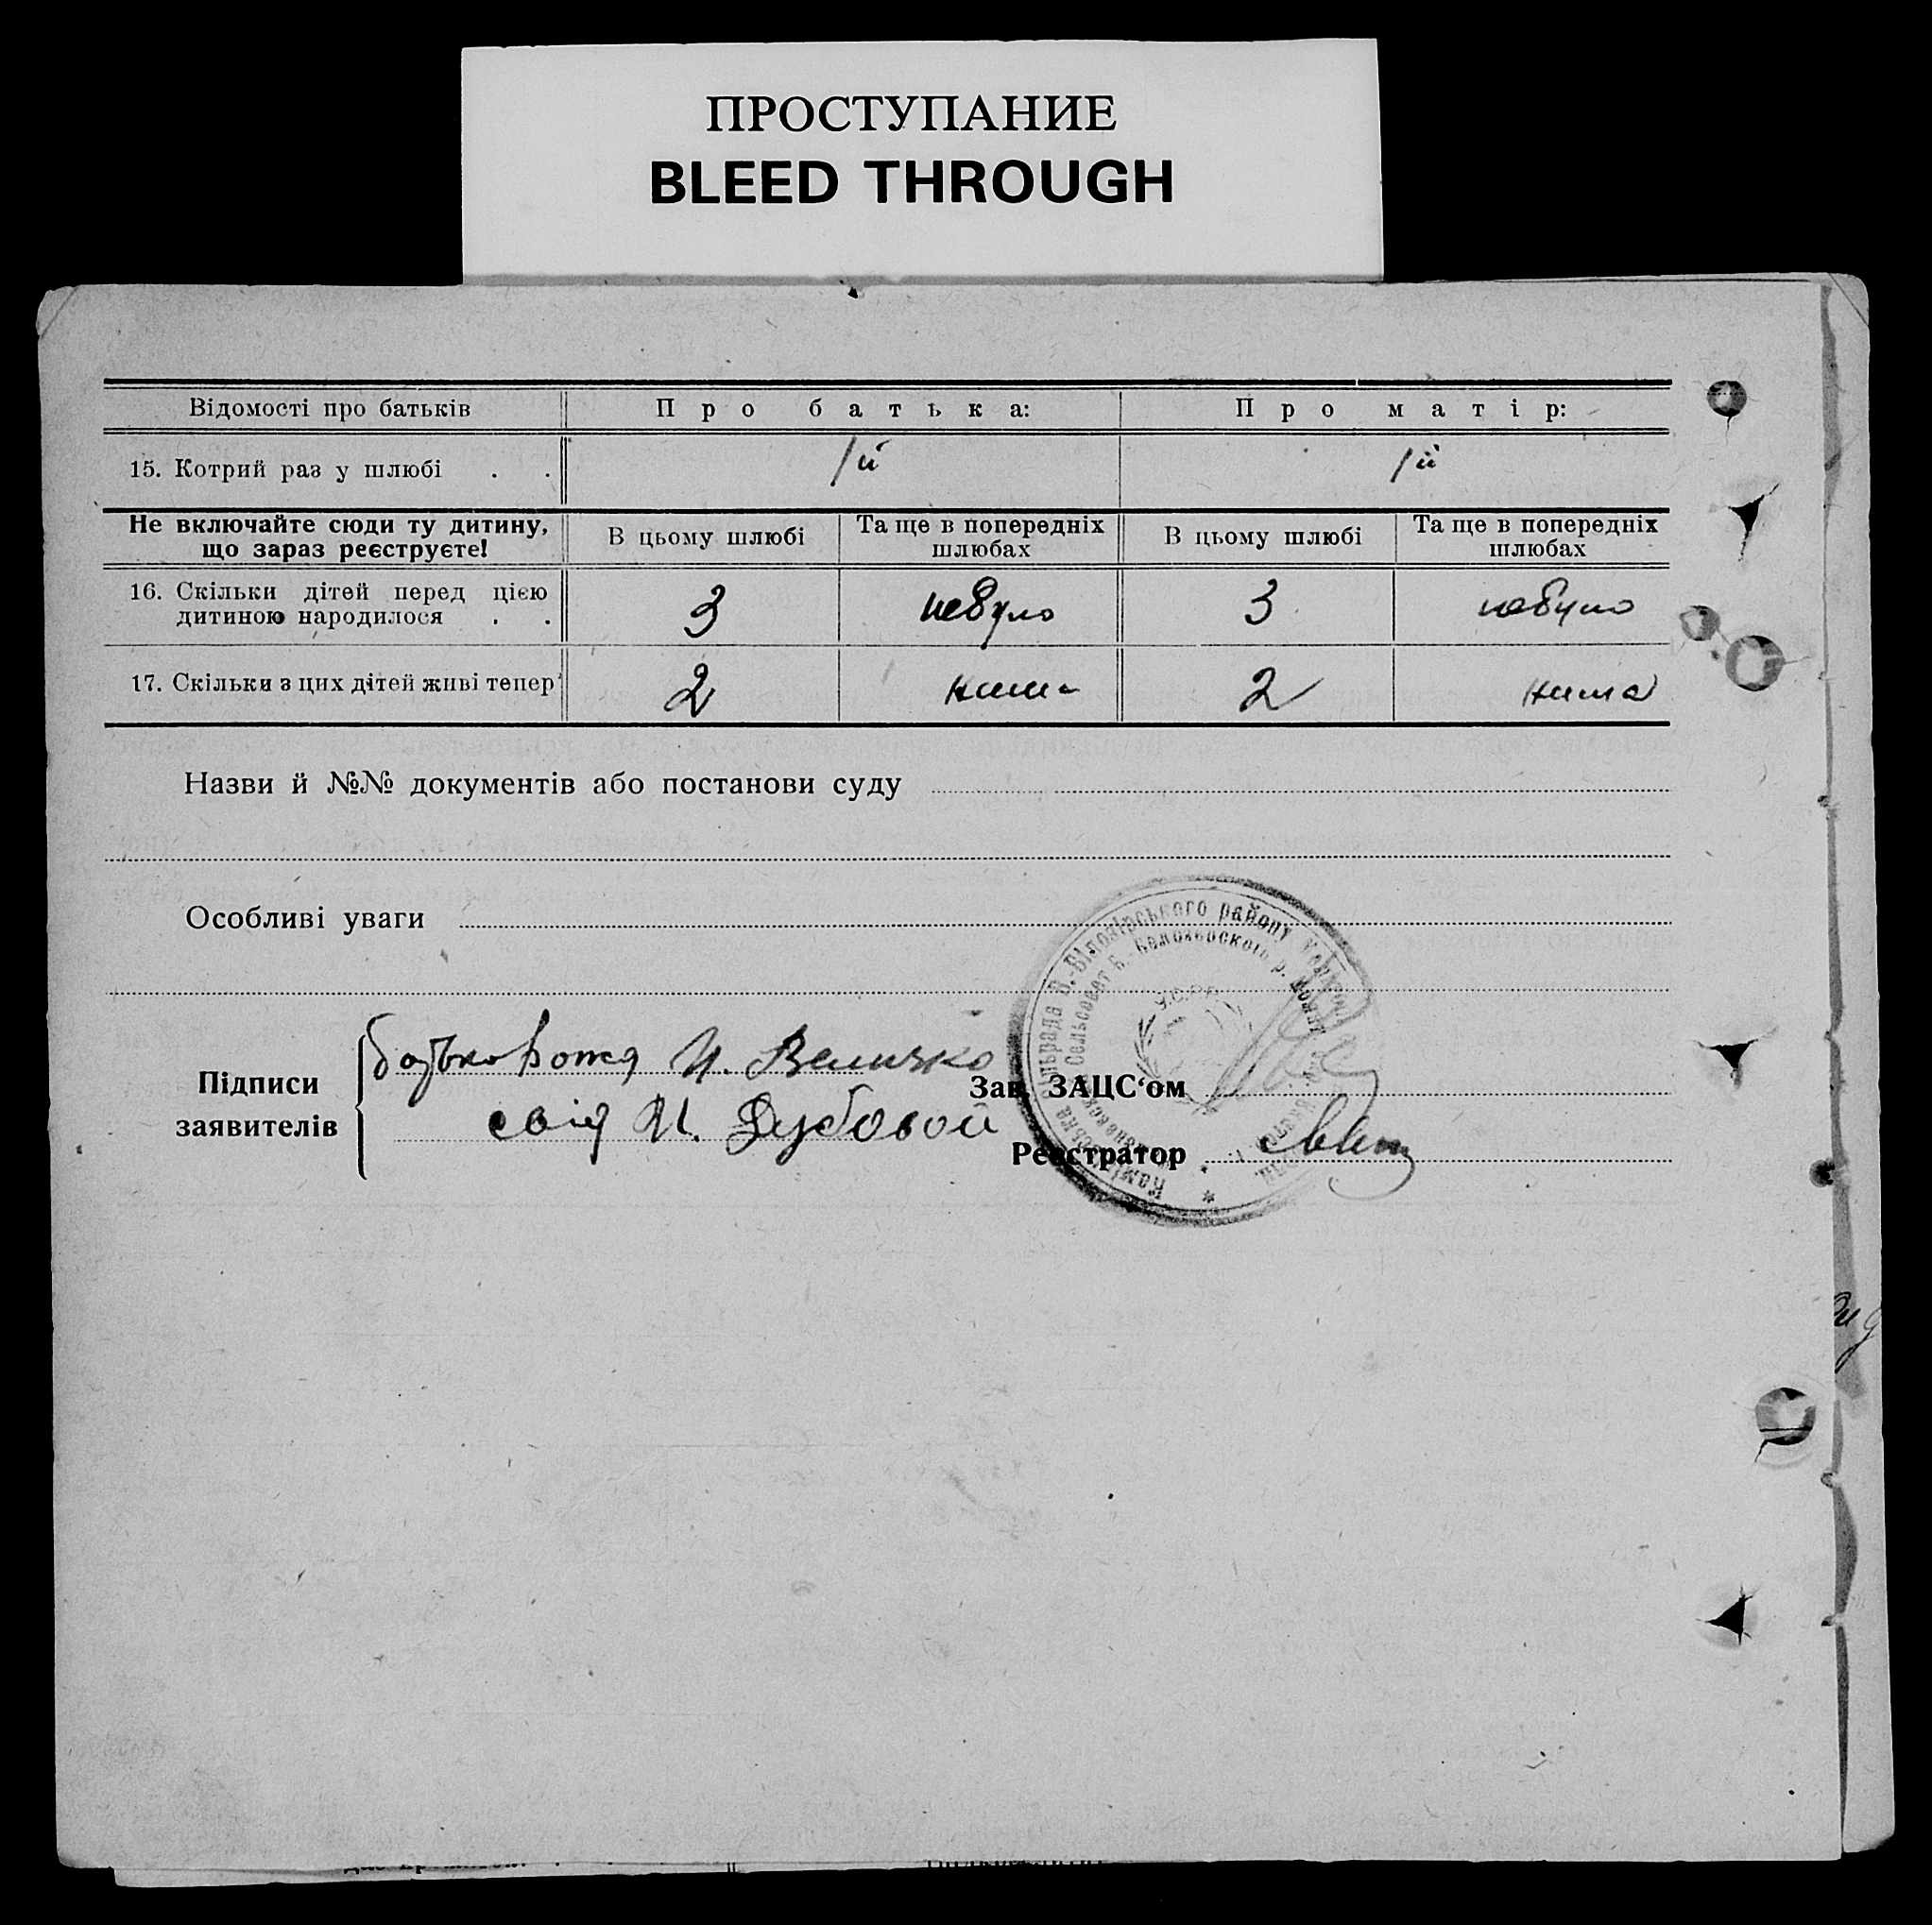 ПРОСТУПАНИЕ
BLEED THROUGH
Відомості про батьків Про батька: Про матір:
15. Котрий раз у шлюбі . . 1й 1й
Не включайте сюди ту дитину, що зараз реєструєте! В цьому шлюбі Та ще в попередніх шлюбах В цьому шлюбі Та ще в попередніх шлюбах
16. Скільки дітей перед цією дитиною народилося . . 3 небуло 3 небуло
17. Скільки з цих дітей живі тепер 2 нима 2 нима
Назви й №№ документів або постанови суду
Особливі уваги
Підписи заявителів
батько И. Величко
свід И. Дубовой
Зав. ЗАЦС‘ом
Реєстратор
В.-Білозірського району
У.С.Р.Р.